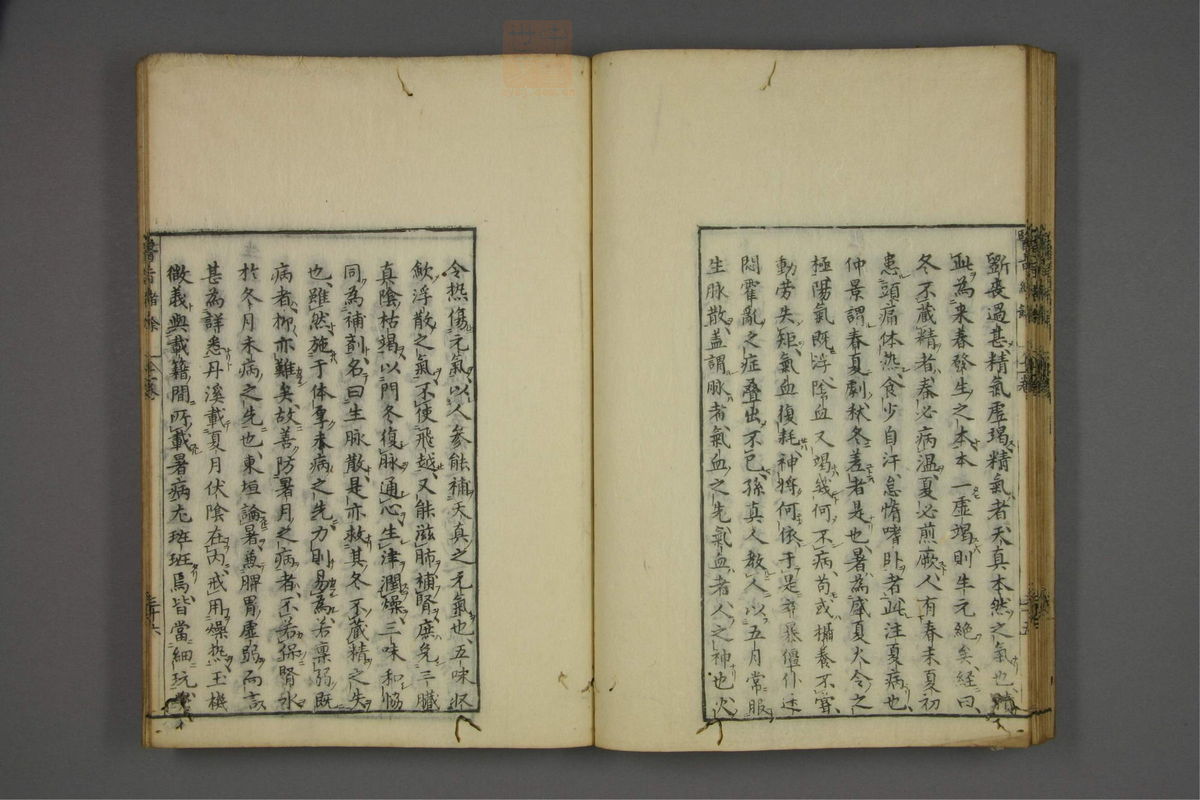 劉疫過甚精氣虛竭精氣者天真本然之氣也積
此為来春發生之本本一虛竭則生元絶矣經曰
冬不藏精者春必病温夏必煎厥人有春末夏初
患頭痛体熱食少自汗怠惰嗜卧者此注夏病也
仲景謂春夏劇秋冬差者是也暑為盛夏火令之
極陽氣既浮陰血又竭幾何不病苟或攝養不
動劳失矩氣血復耗神将何依于是卒暴僵仆迷
悶霍亂之症叠出不已孫真人教人以五月常服
生脉散盖謂脉者氣血之先氣血者人之神也火
令热傷元氣以人参能補天真之元氣也五味収
斂浮散之氣不使飛越又能滋肺補腎庶免三臟
真陰枯竭以門冬復脉通心生津潤燥三味和恊
同為補劑名曰生脉散是亦救其冬不藏精之失
也雖然施于体享未病之先力則易為若禀弱既
病者抑亦難矣故善防暑月之病者不若保腎水
於冬月未病之先也東垣論暑為脾胃虛弱而言
甚為詳悉丹溪載夏月伏陰在内戒用燥热玉機
微義與載籍間所載暑病尤班班焉皆當細玩